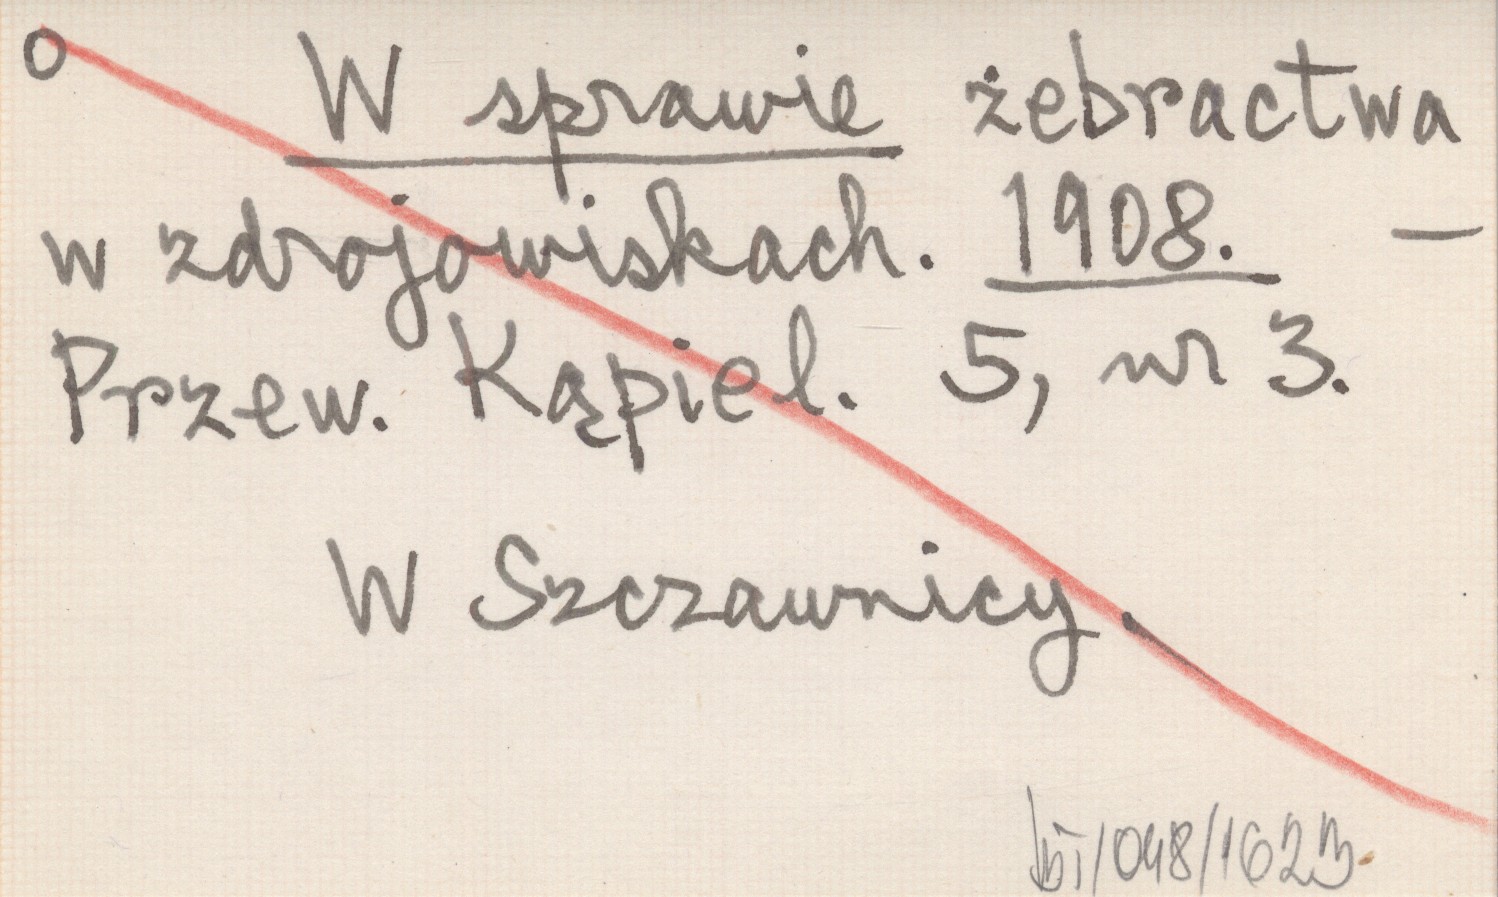 o W sprawie żebractwa
w zdrojowiskach. 1908. —
Przew. Kąpiel. 5, nr 3.
W Szczawnicy.
bi/048/1623